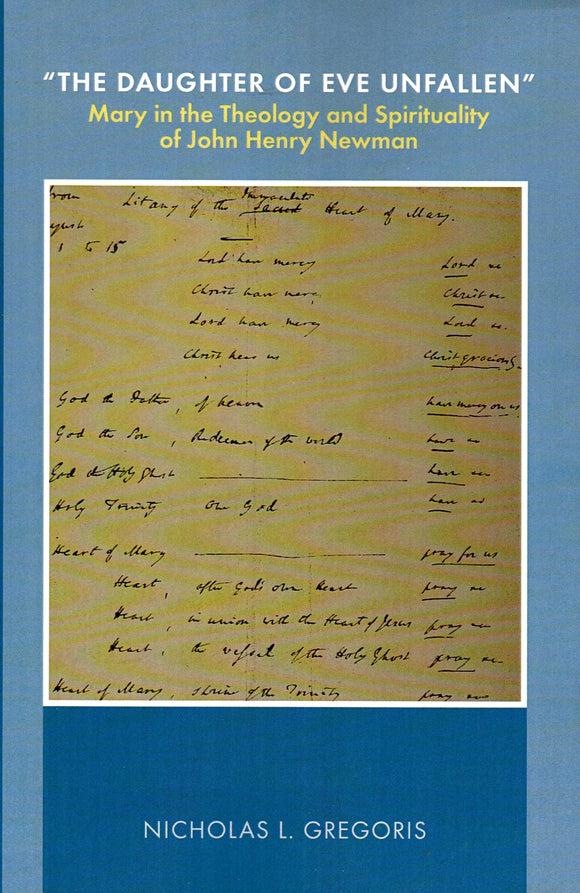 "THE DAUGHTER OF EVE UNFALLEN"
Mary in the Theology and Spirituality
of John Henry Newman
from Litany of the Immaculate Sacred Heart of Mary.
1 to 15
Lord have mercy Lord
Christ have mercy Christ
Lord have mercy Lord
Christ hear us Christ graciously
God the Father, of heaven have mercy on us
God the Son, Redeemer of the world have
God the Holy Ghost have
Holy Trinity One God have
Heart of Mary pray for us
Heart, after God's own heart pray
Heart, in union with the Heart of Jesus pray
Heart, the vessel of the Holy Ghost pray
Heart of Mary, shrine of the Trinity pray
NICHOLAS L. GREGORIS